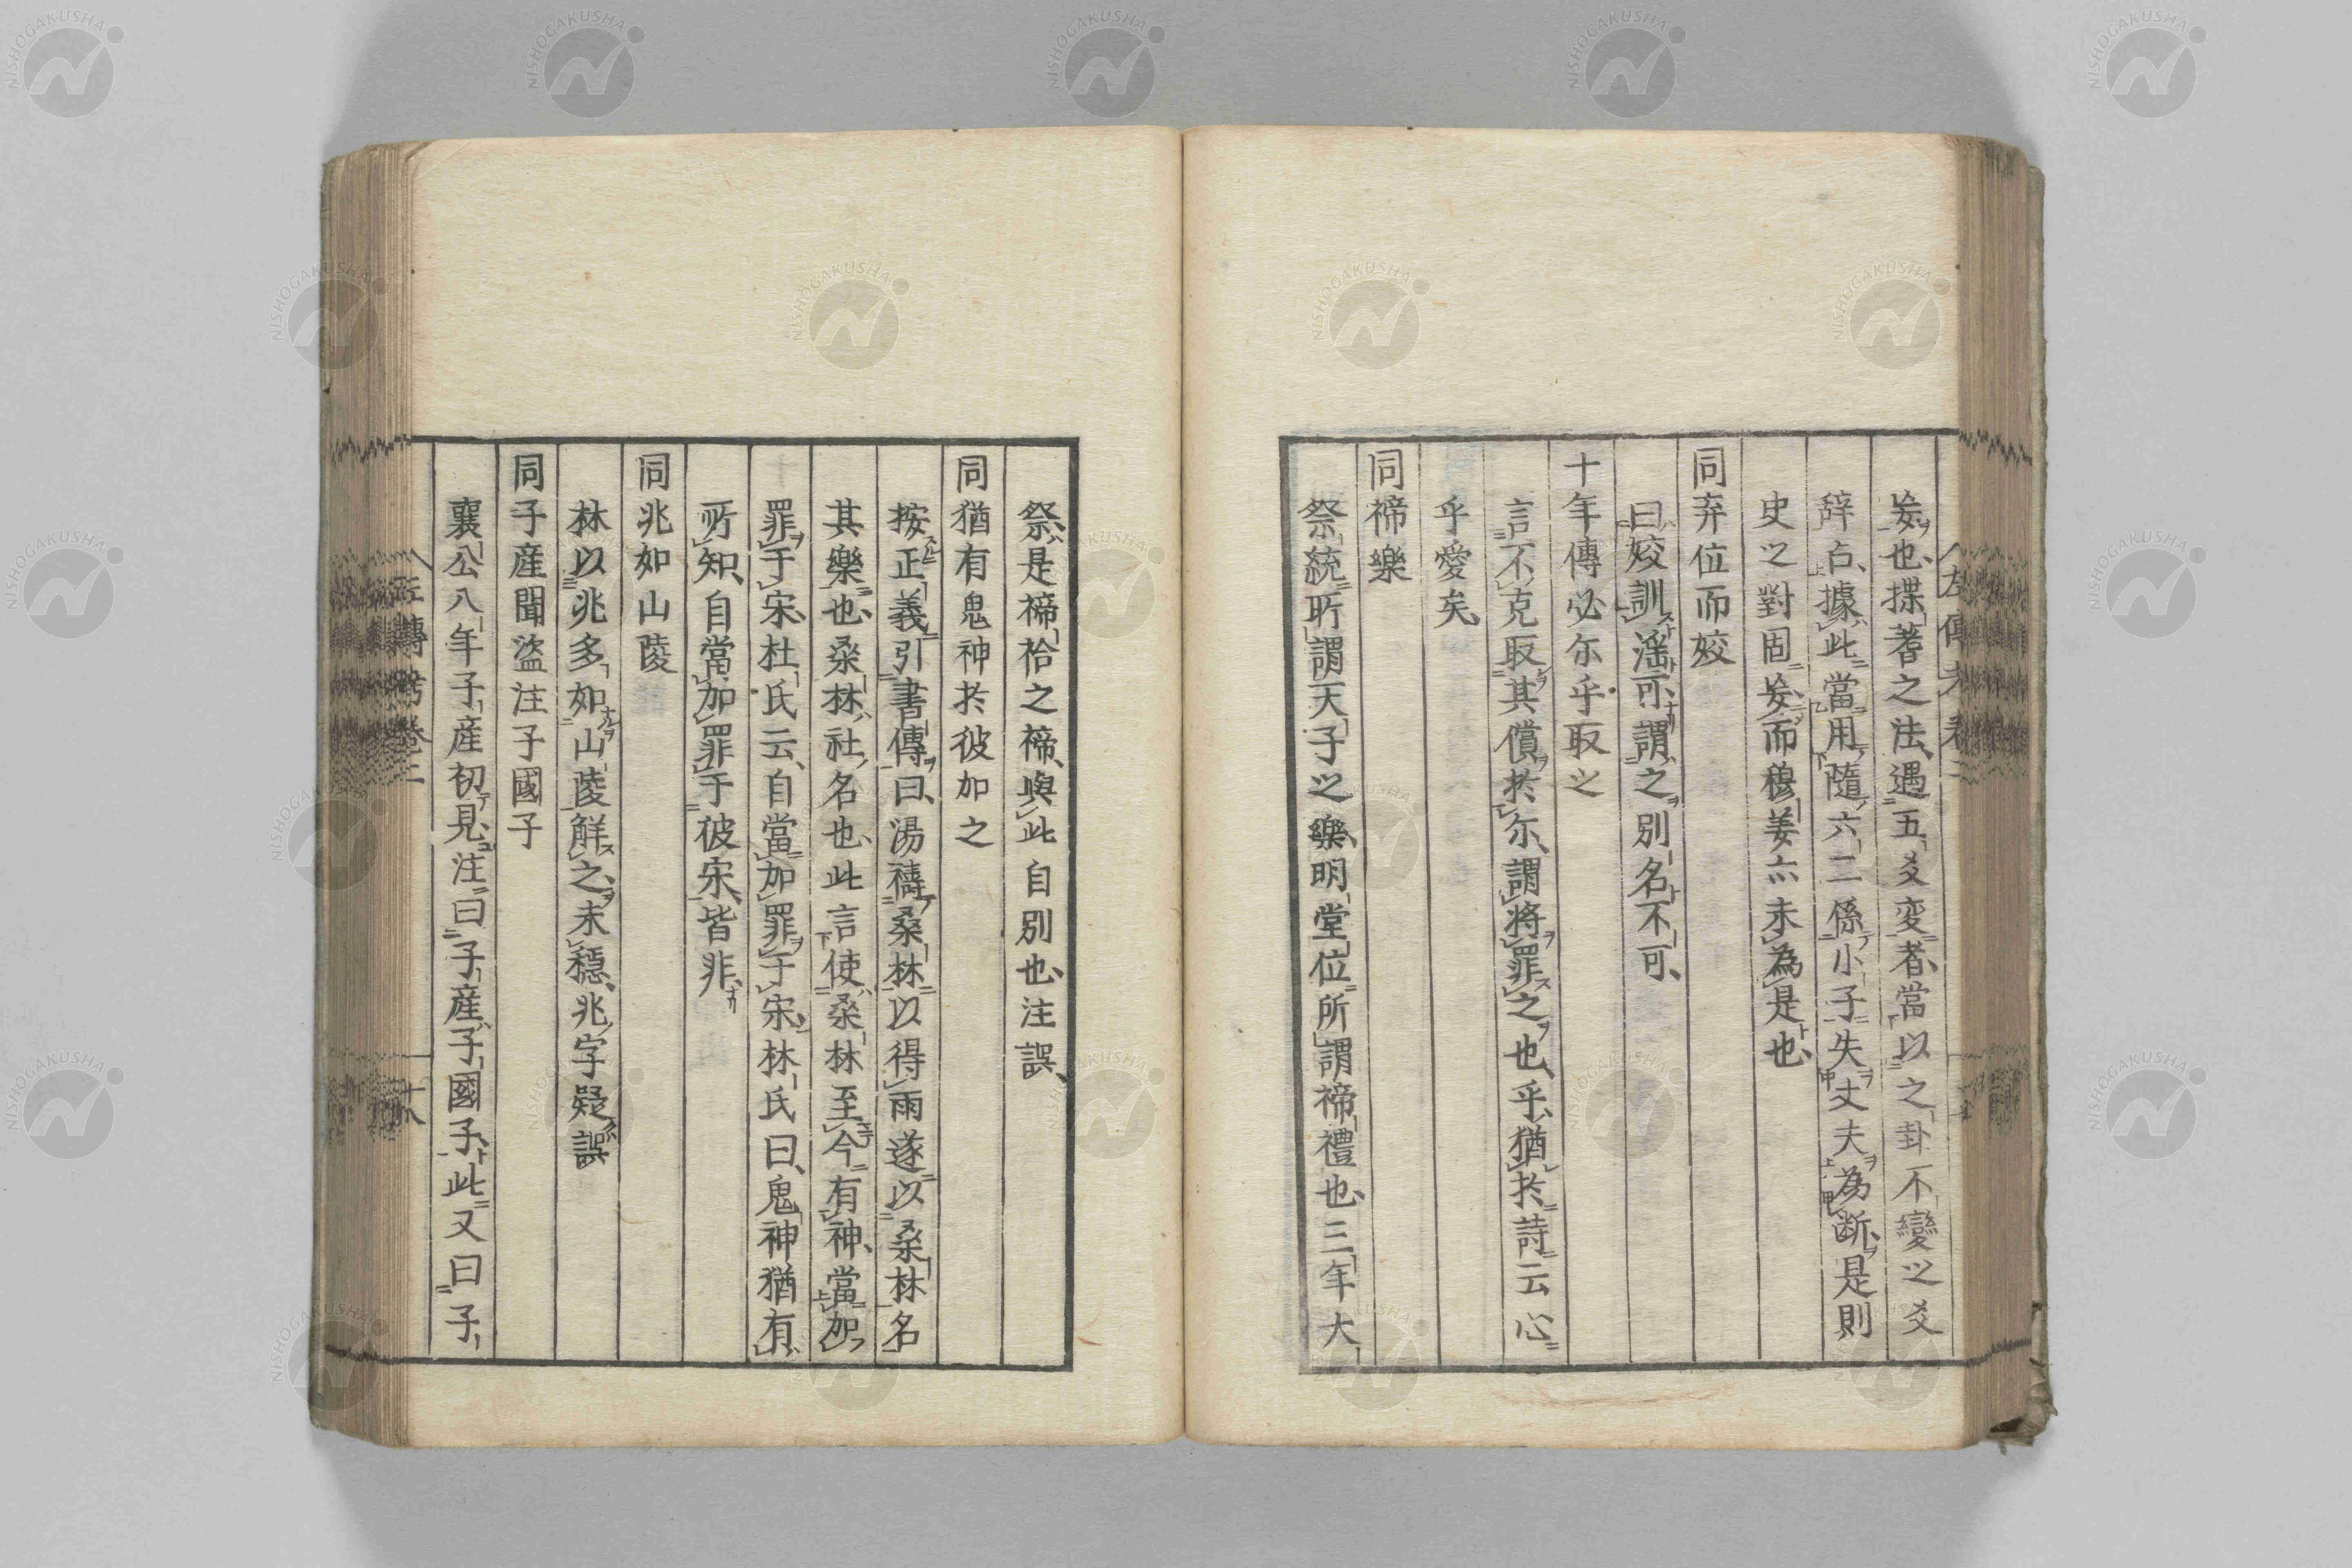 妄也、揲蓍之法、遇五爻変者、當以之卦不變之爻
辞占、據此當用隨六二係小子失丈夫為断、是則
史之對固妄而穆姜亦未為是也、
同弃位而姣
曰姣訓滛可、謂之別名不可、
十年傳必尓乎取之
言不克取其償於尓、謂將罪之也、乎、猶於、詩云心
乎愛矣、
同禘樂
祭統所謂天子之樂、明堂位所謂禘禮也、三年大
祭、是禘祫之禘、與此自別也、注誤、
同猶有鬼神於彼加之
按正義引書傳曰、湯禱桑林以得雨遂以桑林名
其樂也、桑林、社名也、此言使桑林至今有神、當加
罪于宋、杜氏云、自當加罪于宋、林氏曰、鬼神猶有
所知、自當加罪于彼宋、皆非、
同兆如山陵
林以兆多如山陵解之、未穏、兆字疑誤
同子産聞盜注子國子
襄公八年子産初見、注曰子産子國子、此又曰子
左傳考卷二
十八
NISHOGAKUSHA